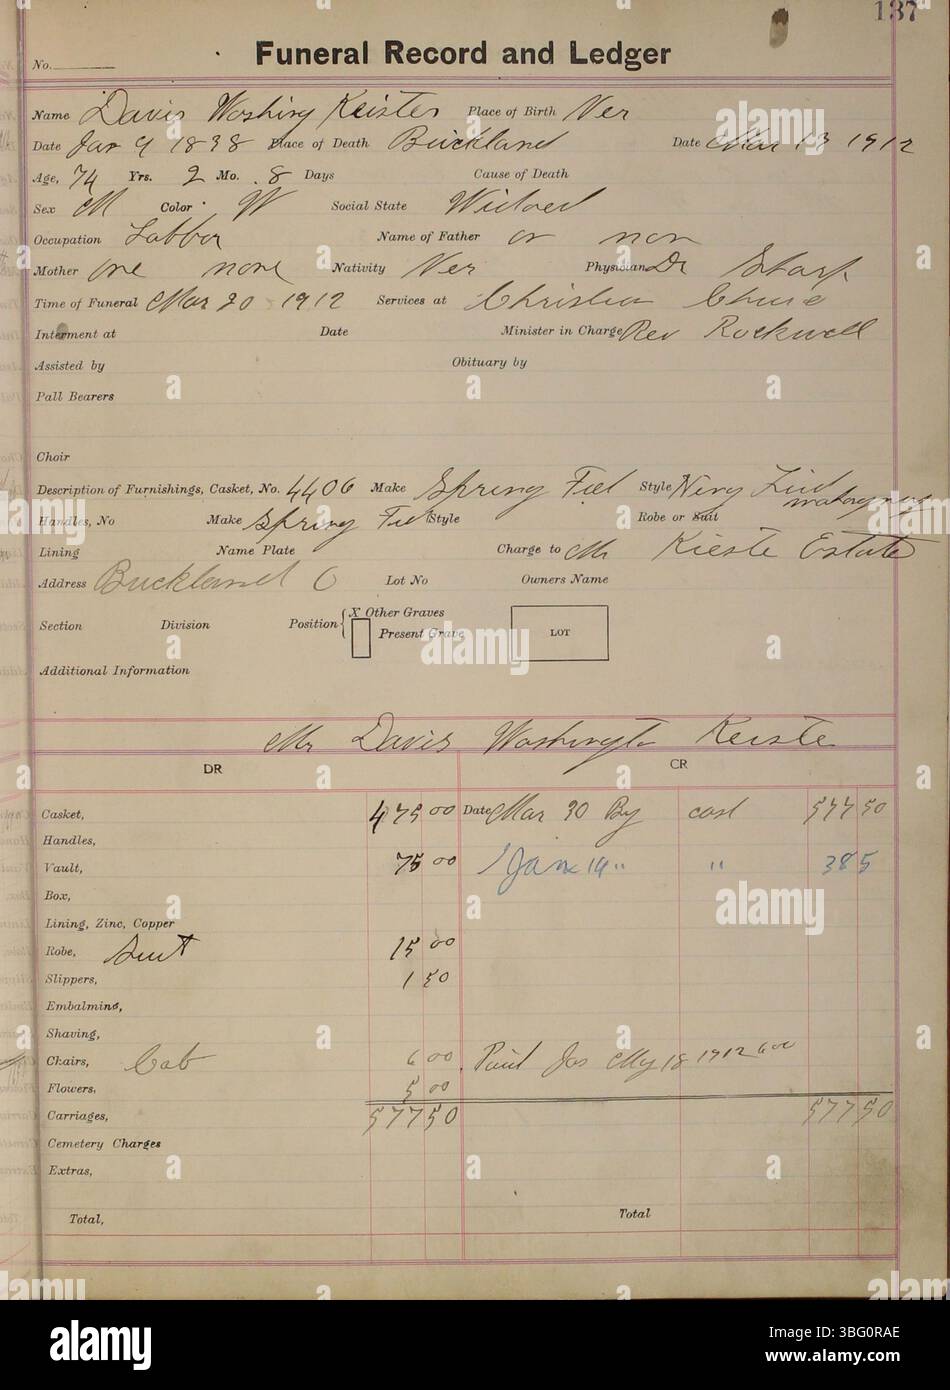 137
Funeral Record and Ledger
No.
Name Davis Washing Keister Place of Birth Ver
Date Jan 9 1838 Place of Death Buckland Date Mar 1912
Age, 74 Yrs. 2 Mo. 8 Days Cause of Death
Sex M Color W Social State Widoed
Occupation Labbor Name of Father or non
Mother one none Nativity Ver Physician Dr
Time of Funeral Mar 20 1912 Services at Christian
Interment at Date Minister in Charge Rev Rockwell
Assisted by Obituary by
Pall Bearers
Choir
Description of Furnishings, Casket, No. 4406 Make Spring Fiel Style
Handles, No Make Spring Fiel Style Robe or Suit
Lining Name Plate Charge to Mr Kieste Estate
Address Buckland O Lot No Owners Name
Section Division Position X Other Graves
Present Grave
LOT
Additional Information
Mr Davis Washington Keiste
DR CR
Casket, 475 00 Date Mar 20 By cash 577 50
Handles,
Vault, 75 00 Jan 19 " " 385
Box,
Lining, Zinc, Copper
Robe, Suit 15 00
Slippers, 1 50
Embalming,
Shaving,
Chairs, Cab 6 00 Paid Jos May 18 1912 6 00
Flowers, 5 00
Carriages, 577 50 577 50
Cemetery Charges
Extras,
Total, Total
alamy
Image ID: 3BG0RAE
www.alamy.com